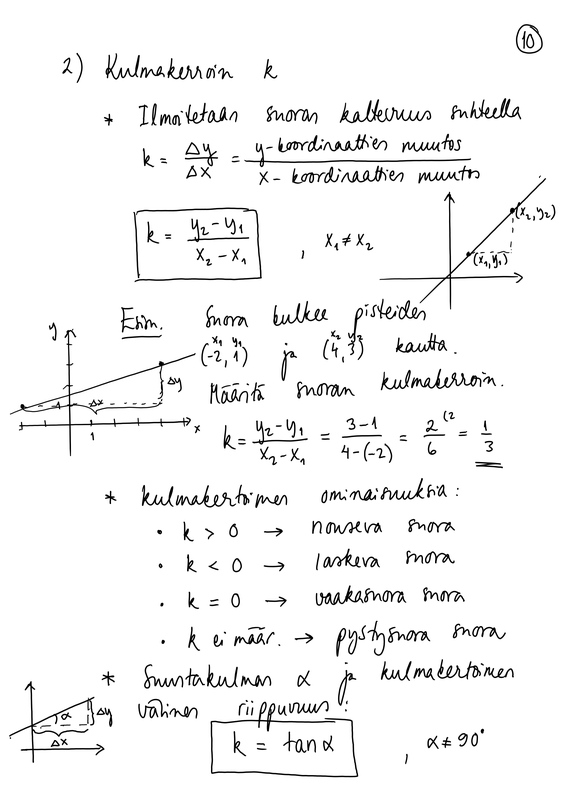 10
2) Kulmakerroin k
* Ilmoitetaan suoran kaltevuus suhteella
k = Δy/Δx = y-koordinaattien muutos / x-koordinaattien muutos
k = (y₂ - y₁)/(x₂ - x₁) , x₁ ≠ x₂
(x₂, y₂)
(x₁, y₁)
Esim. Suora kulkee pisteiden
x₁ y₁ x₂ y₂
(-2, 1) ja (4, 3) kautta.
Määritä suoran kulmakerroin.
y
Δy
Δx
1
x
k = (y₂ - y₁)/(x₂ - x₁) = (3 - 1)/(4 - (-2)) = 2/6 (2 = 1/3
* kulmakertoimen ominaisuuksia:
• k > 0 → nouseva suora
• k < 0 → laskeva suora
• k = 0 → vaakasuora suora
• k ei määr. → pystysuora suora
* Suuntakulman α ja kulmakertoimen
välinen riippuvuus:
α
Δy
Δx
k = tan α , α ≠ 90°